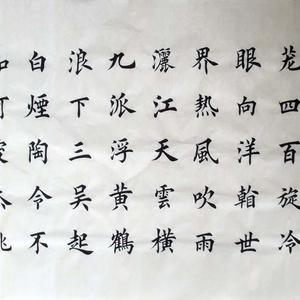 蘢四百旋冷
眼向洋看世
界熱風吹雨
灑江天雲橫
九派浮黃鶴
浪下三吳起
白煙陶令不